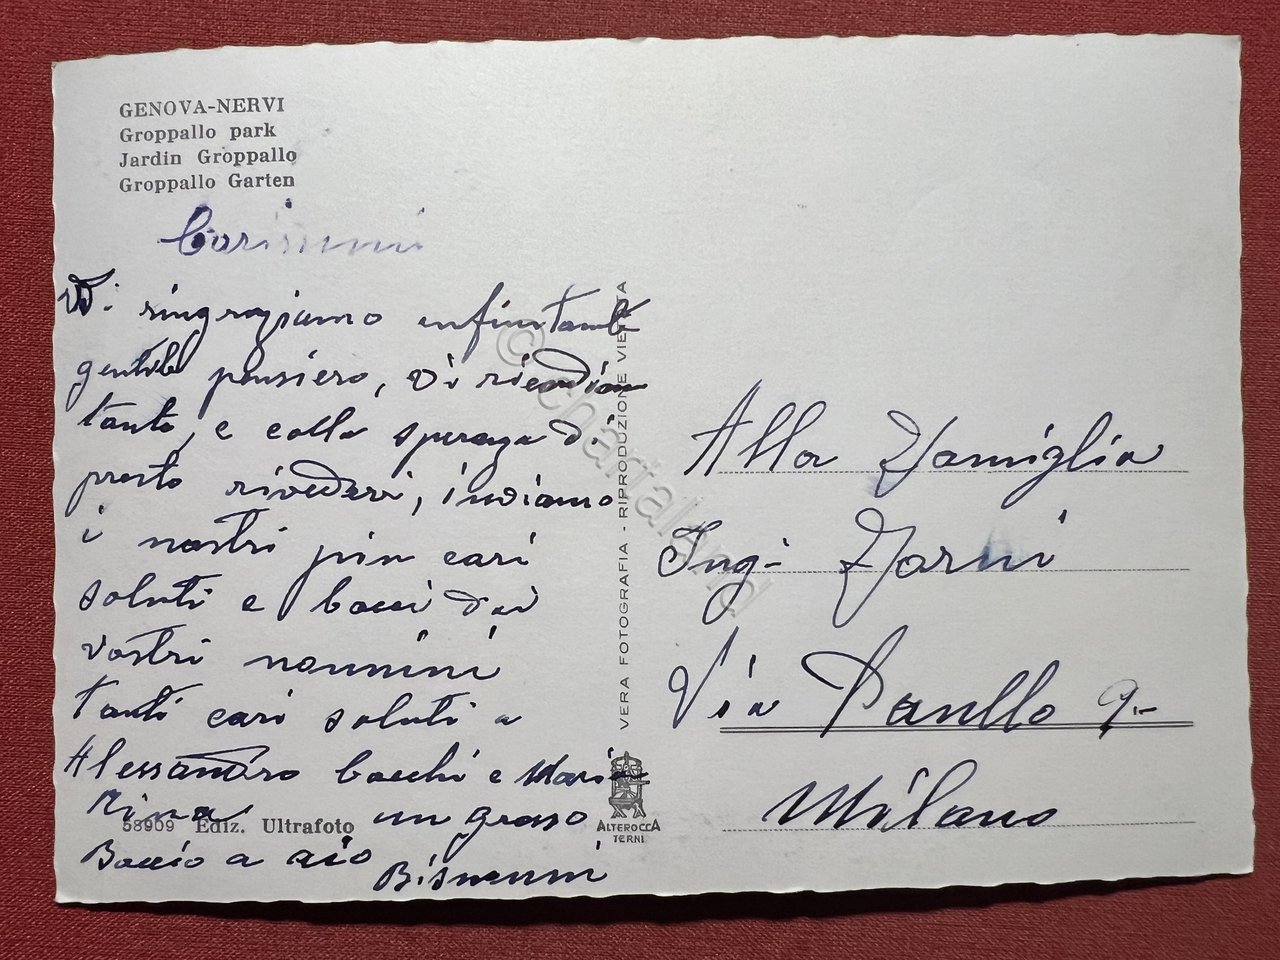 GENOVA-NERVI
Groppallo park
Jardin Groppallo
Groppallo Garten
Carissimi
Vi ringraziamo
gentile pensiero, vi ricordiamo
tanto, e colla speranza di
presto rivedervi, inviamo
i nostri più cari
saluti e bacci dai
vostri nonnini
Tanti cari saluti a
Alessandro bacchi e Maria
Rina un grosso
Baccio a
Bisnonni
58909 Ediz. Ultrafoto
VERA FOTOGRAFIA - RIPRODUZIONE VIETATA
ALTEROCCA
TERNI
© chartaland
Alla Famiglia
Ing. Zarni
Via 9.-
Milano